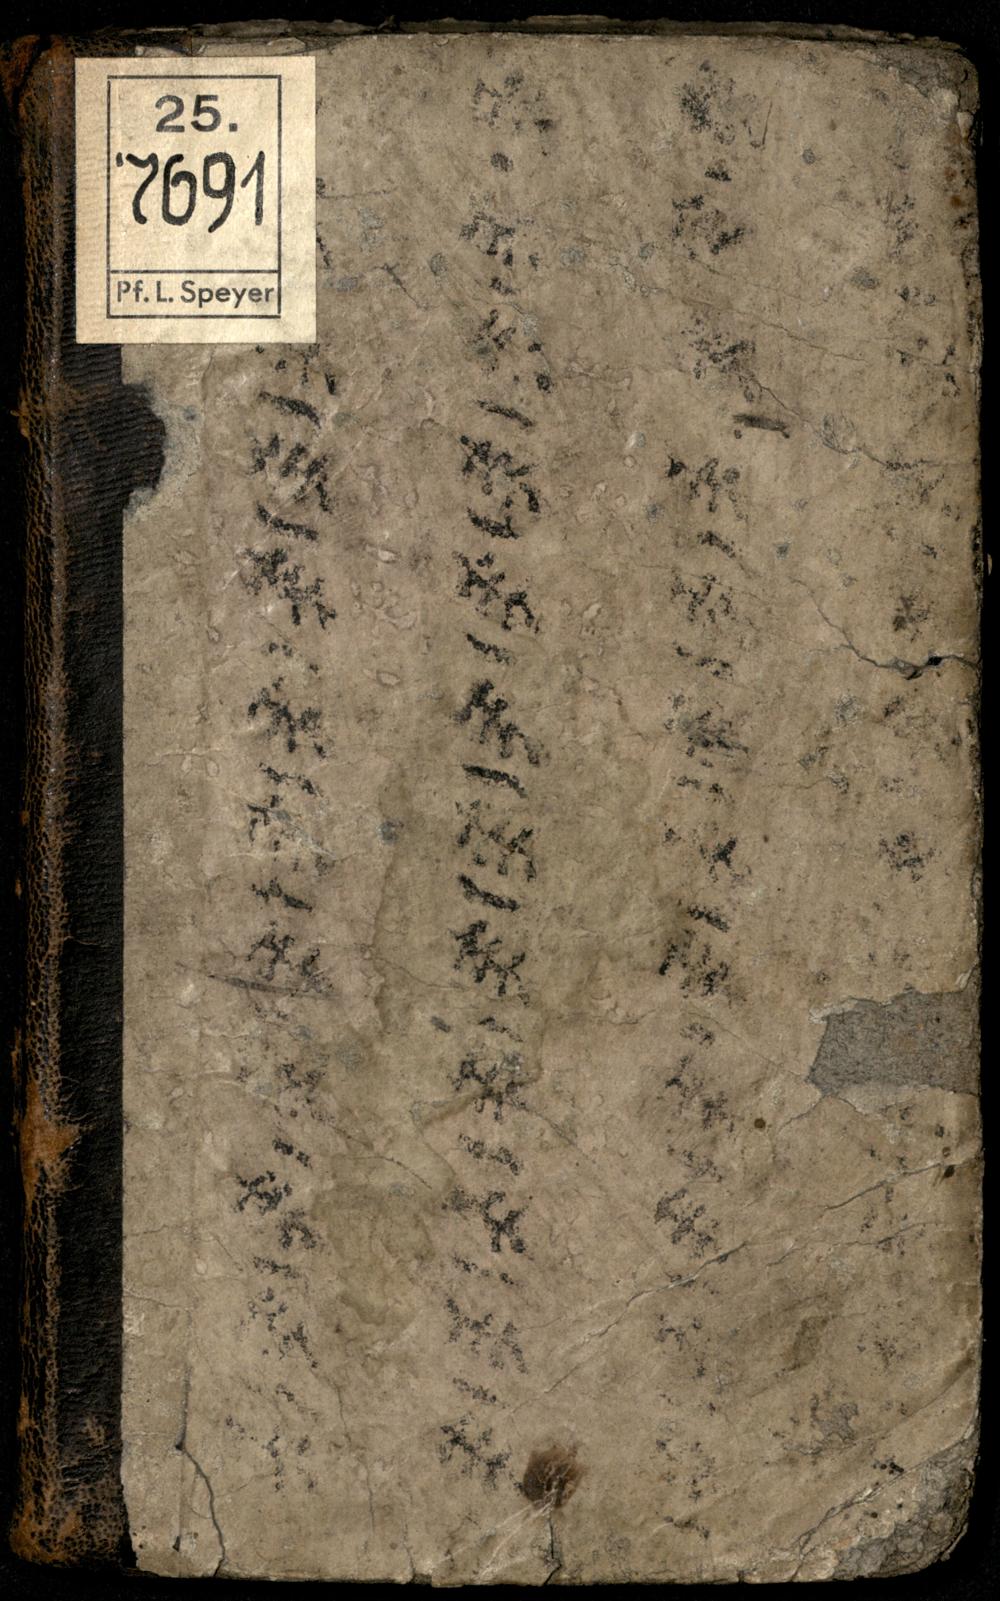 25.
7691
Pf. L. Speyer